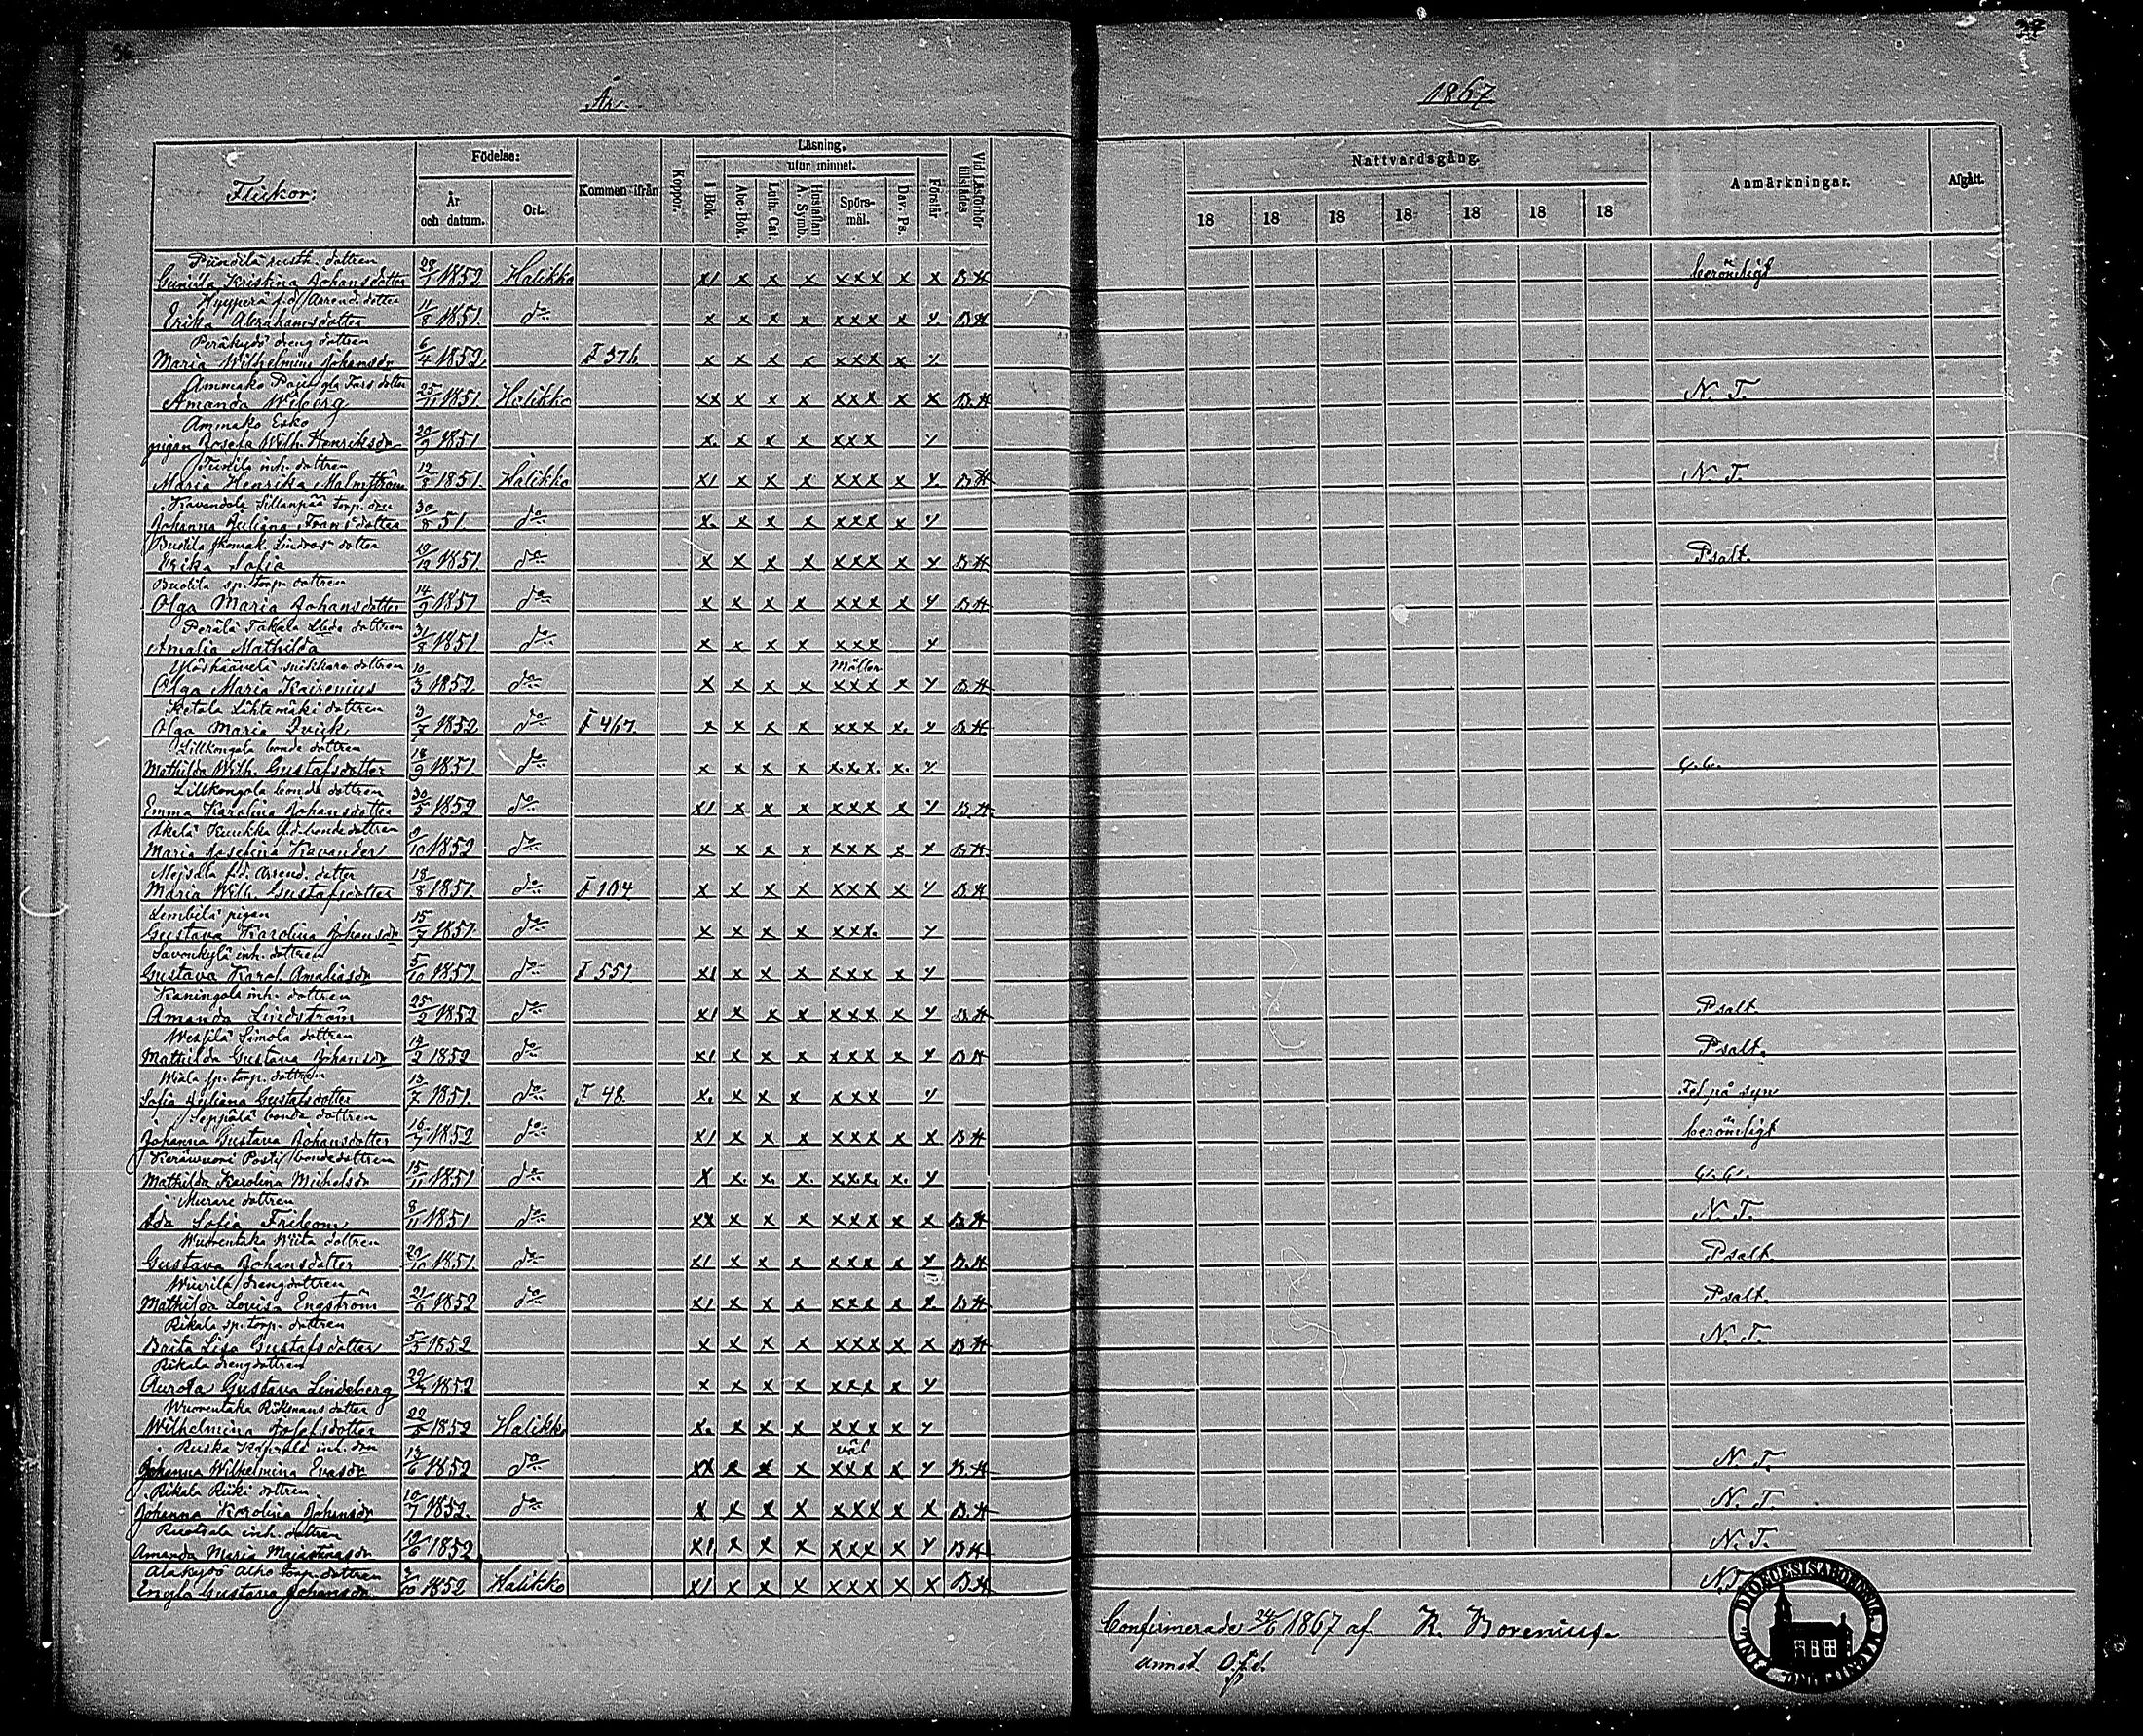 År
1867
Flickor:
Födelse:
År och datum.
Ort.
Kommen ifrån
Koppor.
Läsning,
utur minnet.
I Bok.
Abc-Bok.
Luth. Cat.
Hustaflan A. Symb.
Spörs-mål.
Dav. Ps.
Förstår
Vid Läsförhör tillstädes
Nattvardsgång.
18 18 18 18 18 18 18
Anmärkningar.
Afgått.
dottren
Gunilla Kristina Johansdotter 28/1 1852 Halikko x1 x x x xxx x x B.H berömligt
Hyyperä f.d. Arrend. dotter
Erika Abrahamsdotter 11/8 1851. do x x x x xxx x y. B H
Peräkylä dreng dottren
Maria Wilhelmina Johansdr 6/4 1852 I 376. x x x x xxx x y
Ammako
Amanda Wiberg 25/11 1851 Halikko xx x x x xxx x x B.H N. T.
Ammako Esko
pigan Josefa Wilh. Henriksdr 1851 x. x x x xxx y
inh. dottren
Maria Henrika Malmström 12/8 1851. Halikko x1 x x x xxx x y B H N. T.
Sillanpää torp. dren
Johanna Juliana Fransdotter 30/8 51. do x. x x x xxx x y
dotter
Erika Sofia 19/12 1851. do x x x x xxx x y B H Psalt.
sp. torp. dottren
Olga Maria Johansdotter 14/9 1851 do x x x x xxx x y B H
Perälä Takala dottren
Amalia Mathilda 31/8 1851 do x x x x xxx y
dottren
Olga Maria Kairenius 10/3 1852. do x x x x xxx x y B H
Ketola Lähtemäki dottren
Olga Maria Qvick 3/7 1852 do I 467. x x x x xxx x. y B H
Lillkongola bonde dottren
Mathilda Wilh. Gustafsdotter 18/9 1851. do x x x x x.x.x. x. y
Lillkongola bonde dottren
Emma Karolina Johansdotter 30/5 1852 do x1 x x x xxx x y B.H
Kuukka f.d. bonde dottren
Maria Josefina Kavander 9/10 1852 do x x x x xxx x x B H.
f.d. Arrend. dotter
Maria Wilh. Gustafsdotter 18/8 1851. do I 104 x x x x xxx x y B H
pigan
Gustava Karolina Johansdr 15/7 1851 do x x x x xxx. y
Savonkylä inh. dottren
Gustava Karol. Amaliasdr 5/10 1851. do I 551. x1 x x x xxx x y
Kaningola inh. dottren
Amanda Lindström 25/2 1852 do x1 x x x xxx x y B.H Psalt.
Simola dottren
Mathilda Gustava Johansdr 1852 do x1 x x x xxx x x B H Psalt.
sp. torp. dottren
Sofia Juliana Gustafsdotter 13/7 1851. do I 48. x. x x x xxx y Fel på syn
Seppälä bonde dottren
Johanna Gustava Johansdotter 1852 do x1 x x x xxx x x B H berömligt
Posti bondedottren
Mathilda Karolina Michelsdr 15/11 1851 do x x. x. x. x.x.x. x. y
Murare dottren
Ida Sofia Fribom 8/11 1851 do xx x x x xxx x x B.H N. T.
Wuorentaka Wiita dottren
Gustava Johansdotter 1851. do x1 x x x xxx x y B.H Psalt.
Wiurila drengdottren
Mathilda Lovisa Engström 21/6 1852 do x1 x x x xxx x x. B H Psalt.
Rikala sp. torp. dottren
Lisa Gustafsdotter 5/5 1852 x x x x xxx x x B H N. T.
Rikala drengdottren
Aurora Gustava Lindeberg 1852 x x x x xxx x y
Wuorentaka dotter
Wilhelmina Josefsdotter 1852 Halikko x. x x x xxx x y
Ruska inh. väl
Johanna Wilhelmina Evasdr 13/6 1852 do xx x x x xxx x y B.H N. T.
Rikala dottren
Johanna Karolina Johansdr 10/7 1852. do x x x x xxx x x B.H N. T.
inh. dottren
Amanda Maria 19/6 1852 x1 x x x xxx x y B H N. T.
Alho torp. dottren
Engla Gustava Johansdr 1852 Halikko x1 x x x xxx x x B.H N.T.
Confirmerade 24/6 1867 af K. Borenius